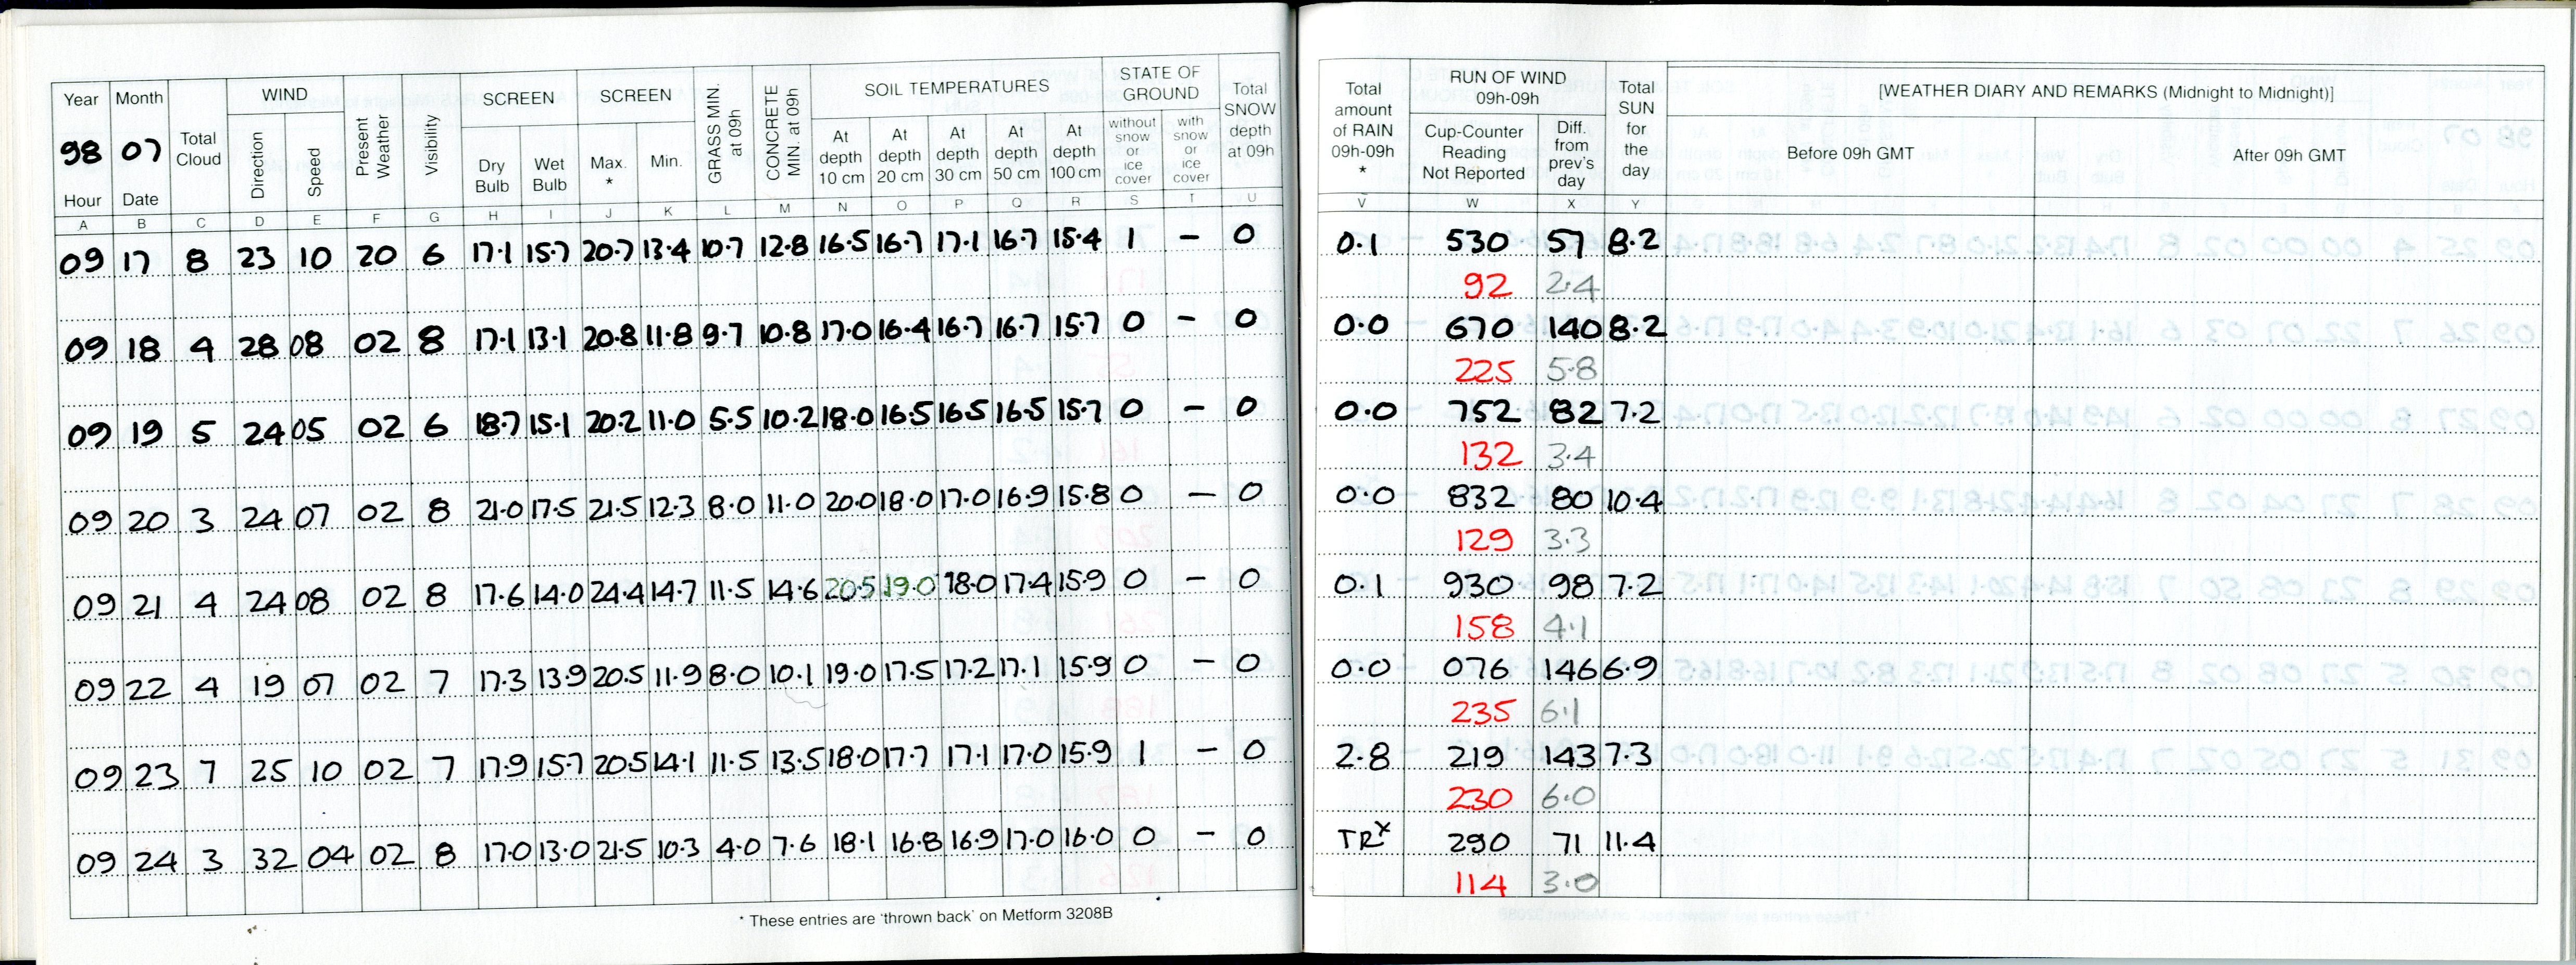 Year Month Total Cloud WIND Present Weather Visibility SCREEN SCREEN GRASS MIN. at 09h CONCRETE MIN. at 09h SOIL TEMPERATURES STATE OF GROUND Total SNOW depth at 09h
98 07 Direction Speed Dry Bulb Wet Bulb Max. * Min. At depth 10 cm At depth 20 cm At depth 30 cm At depth 50 cm At depth 100 cm without snow or ice cover with snow or ice cover
Hour Date
A B C D E F G H I J K L M N O P Q R S T U
09 17 8 23 10 20 6 17.1 15.7 20.7 13.4 10.7 12.8 16.5 16.7 17.1 16.7 15.4 1 – 0
09 18 4 28 08 02 8 17.1 13.1 20.8 11.8 9.7 10.8 17.0 16.4 16.7 16.7 15.7 0 – 0
09 19 5 24 05 02 6 18.7 15.1 20.2 11.0 5.5 10.2 18.0 16.5 16.5 16.5 15.7 0 – 0
09 20 3 24 07 02 8 21.0 17.5 21.5 12.3 8.0 11.0 20.0 18.0 17.0 16.9 15.8 0 – 0
09 21 4 24 08 02 8 17.6 14.0 24.4 14.7 11.5 14.6 20.5 19.0 18.0 17.4 15.9 0 – 0
09 22 4 19 07 02 7 17.3 13.9 20.5 11.9 8.0 10.1 19.0 17.5 17.2 17.1 15.9 0 – 0
09 23 7 25 10 02 7 17.9 15.7 20.5 14.1 11.5 13.5 18.0 17.7 17.1 17.0 15.9 1 – 0
09 24 3 32 04 02 8 17.0 13.0 21.5 10.3 4.0 7.6 18.1 16.8 16.9 17.0 16.0 0 – 0
* These entries are 'thrown back' on Metform 3208B
Total amount of RAIN 09h-09h * RUN OF WIND 09h-09h Total SUN for the day [WEATHER DIARY AND REMARKS (Midnight to Midnight)]
Cup-Counter Reading Not Reported Diff. from prev's day Before 09h GMT After 09h GMT
V W X Y
0.1 530 57 8.2
92 2.4
0.0 670 140 8.2
225 5.8
0.0 752 82 7.2
132 3.4
0.0 832 80 10.4
129 3.3
0.1 930 98 7.2
158 4.1
0.0 076 146 6.9
235 6.1
2.8 219 143 7.3
230 6.0
TRx 290 71 11.4
114 3.0